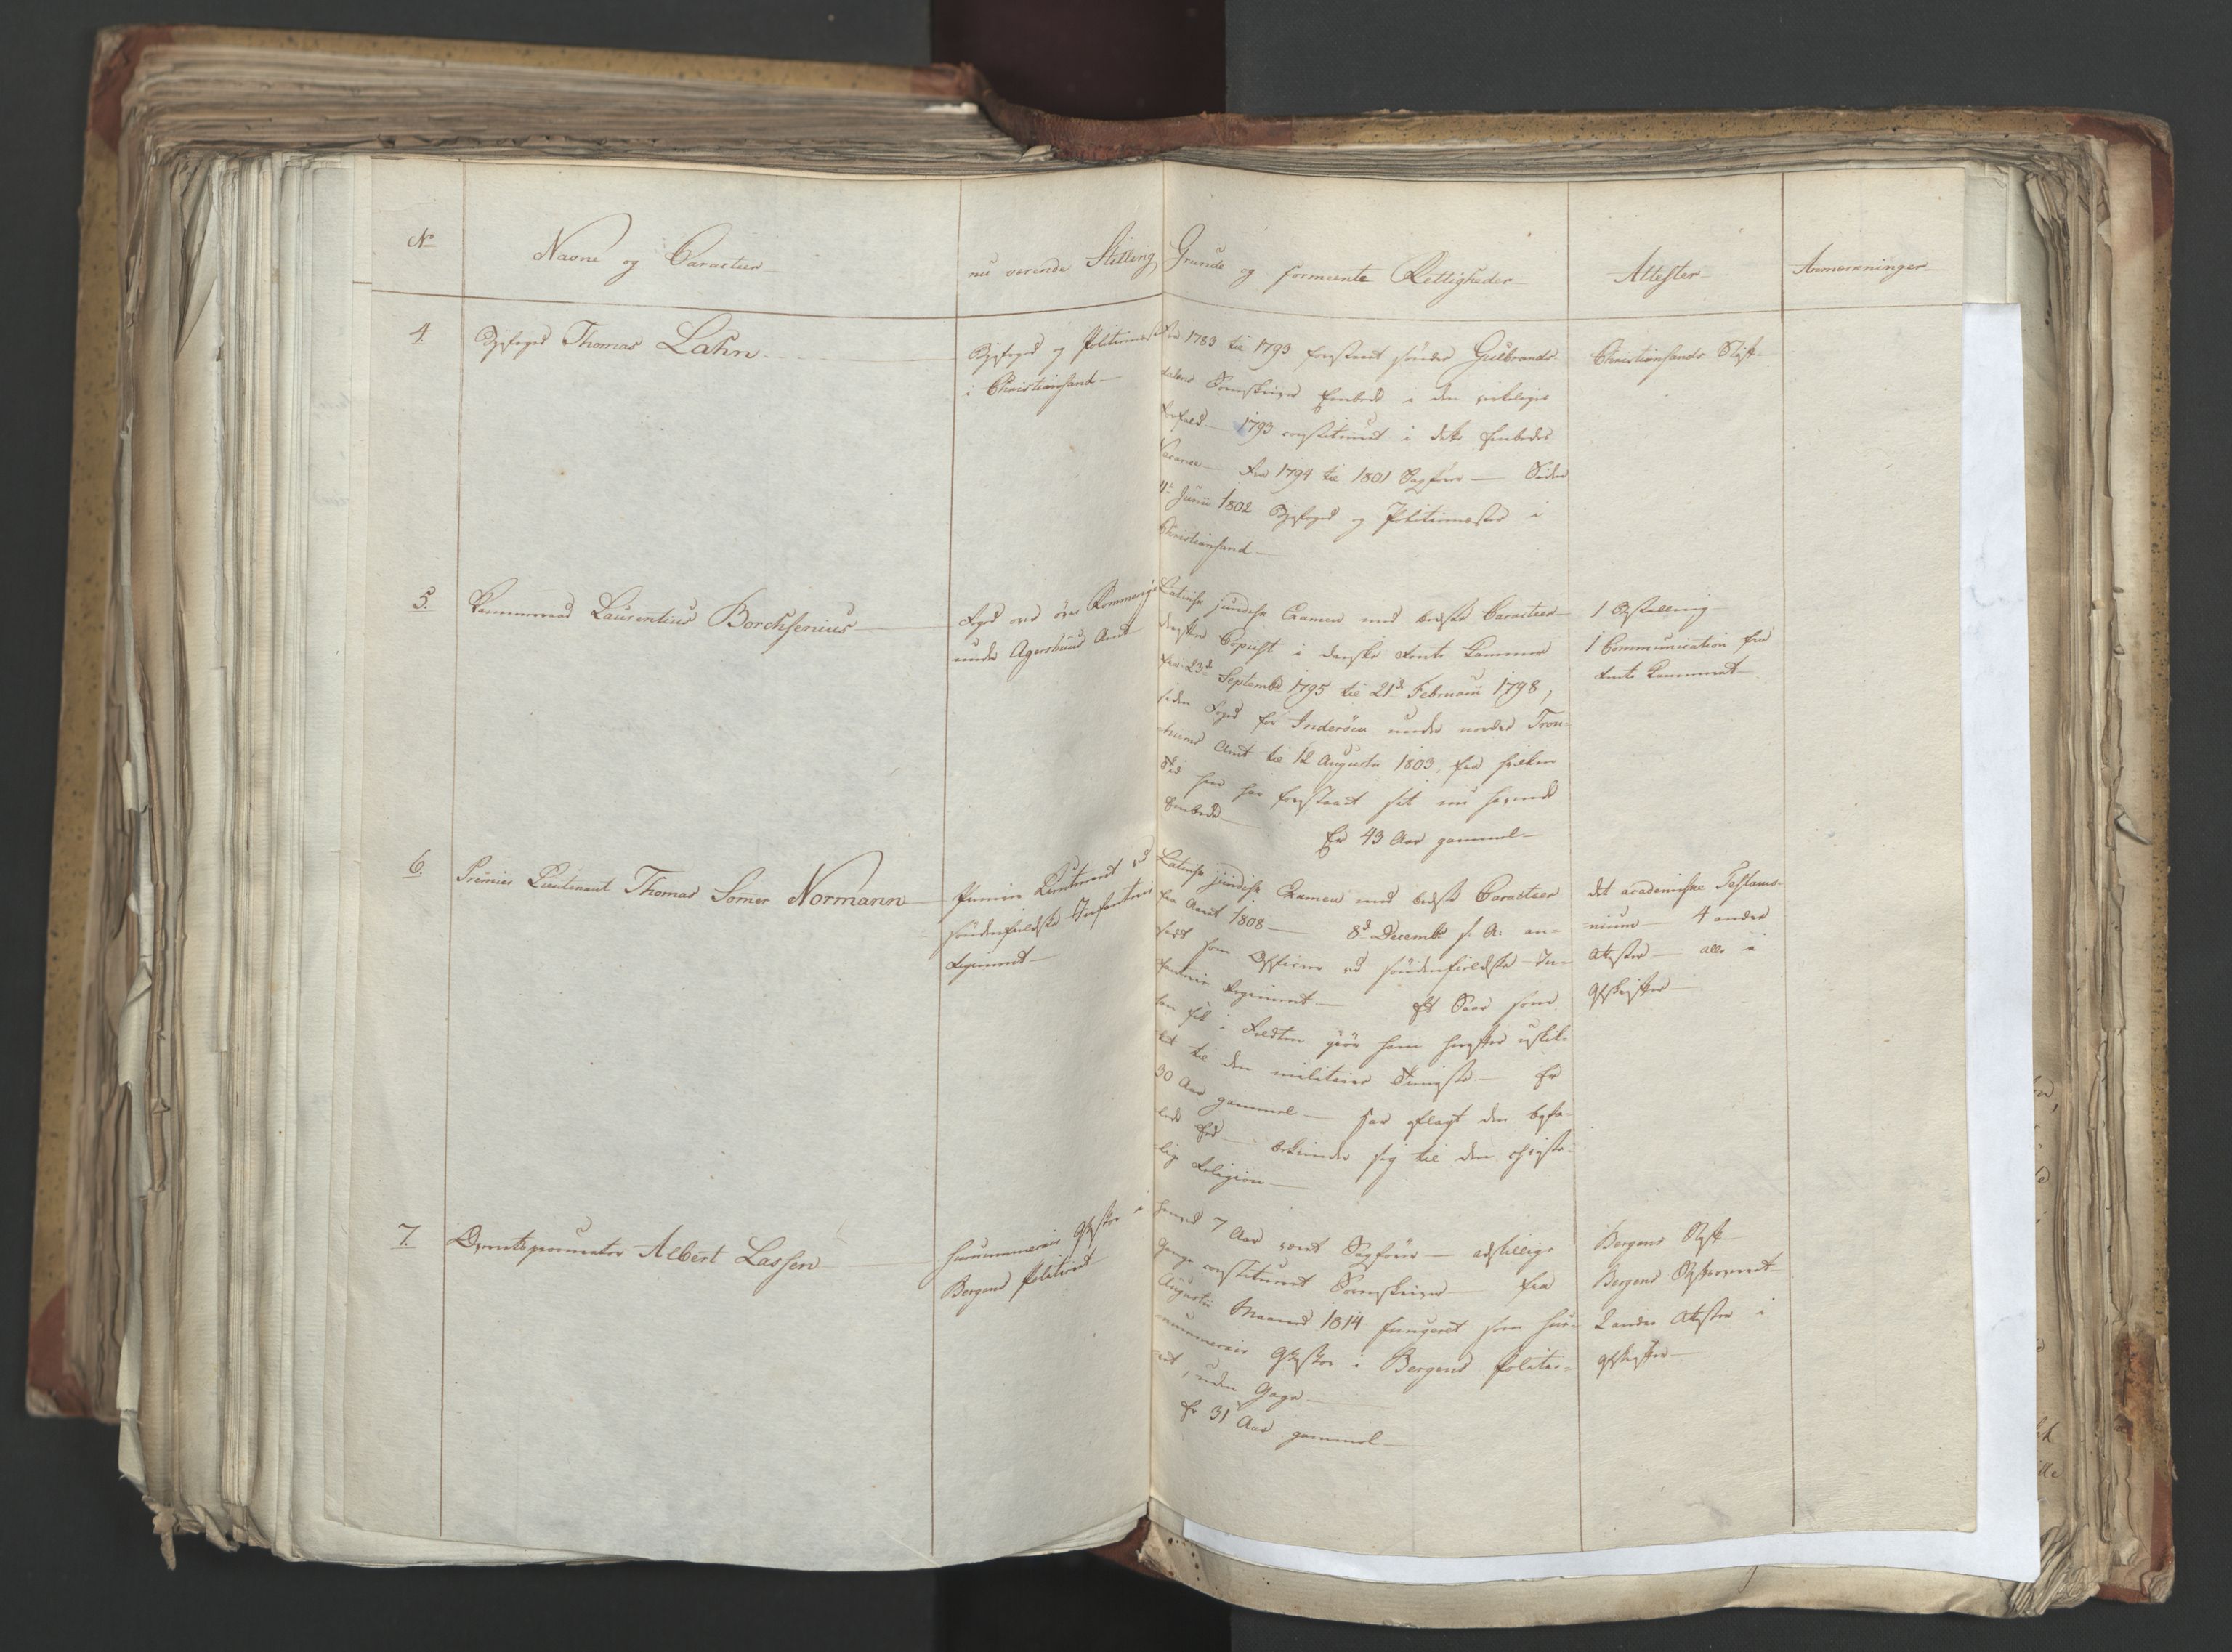 No
Navne og Caracteer
nu værende Stilling
Grunde og formeente Rettigheder
Attester
Anmærkninger
4.
Byfoged Thomas Lahn
Byfoged og Politiemester
i Christiansand
Fra 1783 til 1793 forestaaet søndre Gulbrands-
dalens Sorenskriver Embede i den virkeliges
Forfald 1793 constitueret i dette Embedes
Vacance Fra 1794 til 1801 Sagfører Siden
4de Junii 1802 Byfoged og Politiemester i
Christiansand
Christiansands Stift
5.
Kammerraad Laurentius Borchsenius
Foged over øvre Rommerige
under Agershuus Amt
Latinsk juridisk Examen med bedste Caracteer
Copiist i danske Rente Kammer
fra 23de Septembr 1795 til 21de Februarii 1798,
siden Foged for Inderøen under nordre Tron-
hiems Amt til 12 Augustii 1803, fra hvilken
Tid han har forestaaet sit nu havende
Embede
Er 43 Aar gammel
1 Bestalling
1 Communication fra
Rente Kammeret
6.
Premier Lieutenant Thomas Sømer Normann
Premier Lieutenant ved
søndenfieldske Infanterie
Regiment
Latinsk juridisk Examen med bedste Caracteer
fra Aaret 1808 8de Decembr s. A. an-
sat som Officier ved søndenfieldske In-
fanterie Regiment Et Saar som
han fik i Feldten giør ham herefter uskik-
ket til den militaire Tieneste Er
30 Aar gammel har aflagt den befa-
lede Eed bekiender sig til den christe-
lige Religion
det academiske Testamo-
nium 4 andre
Attester alle i
Afskrifter
7.
Overretsprocurator Albert Lassen
surnummerair Assessor i
Bergens Politieret
henved 7 Aar været Sagfører adskillige
Gange constitueret Sorenskriver fra
Augustii Maaned 1814 fungeret som sur-
nummerair Assessor i Bergens Politie-
ret, uden Gage
Er 31 Aar gammel
Bergens Stift
Bergens Stiftsoverret
2 andre Attester i
Afskrifter